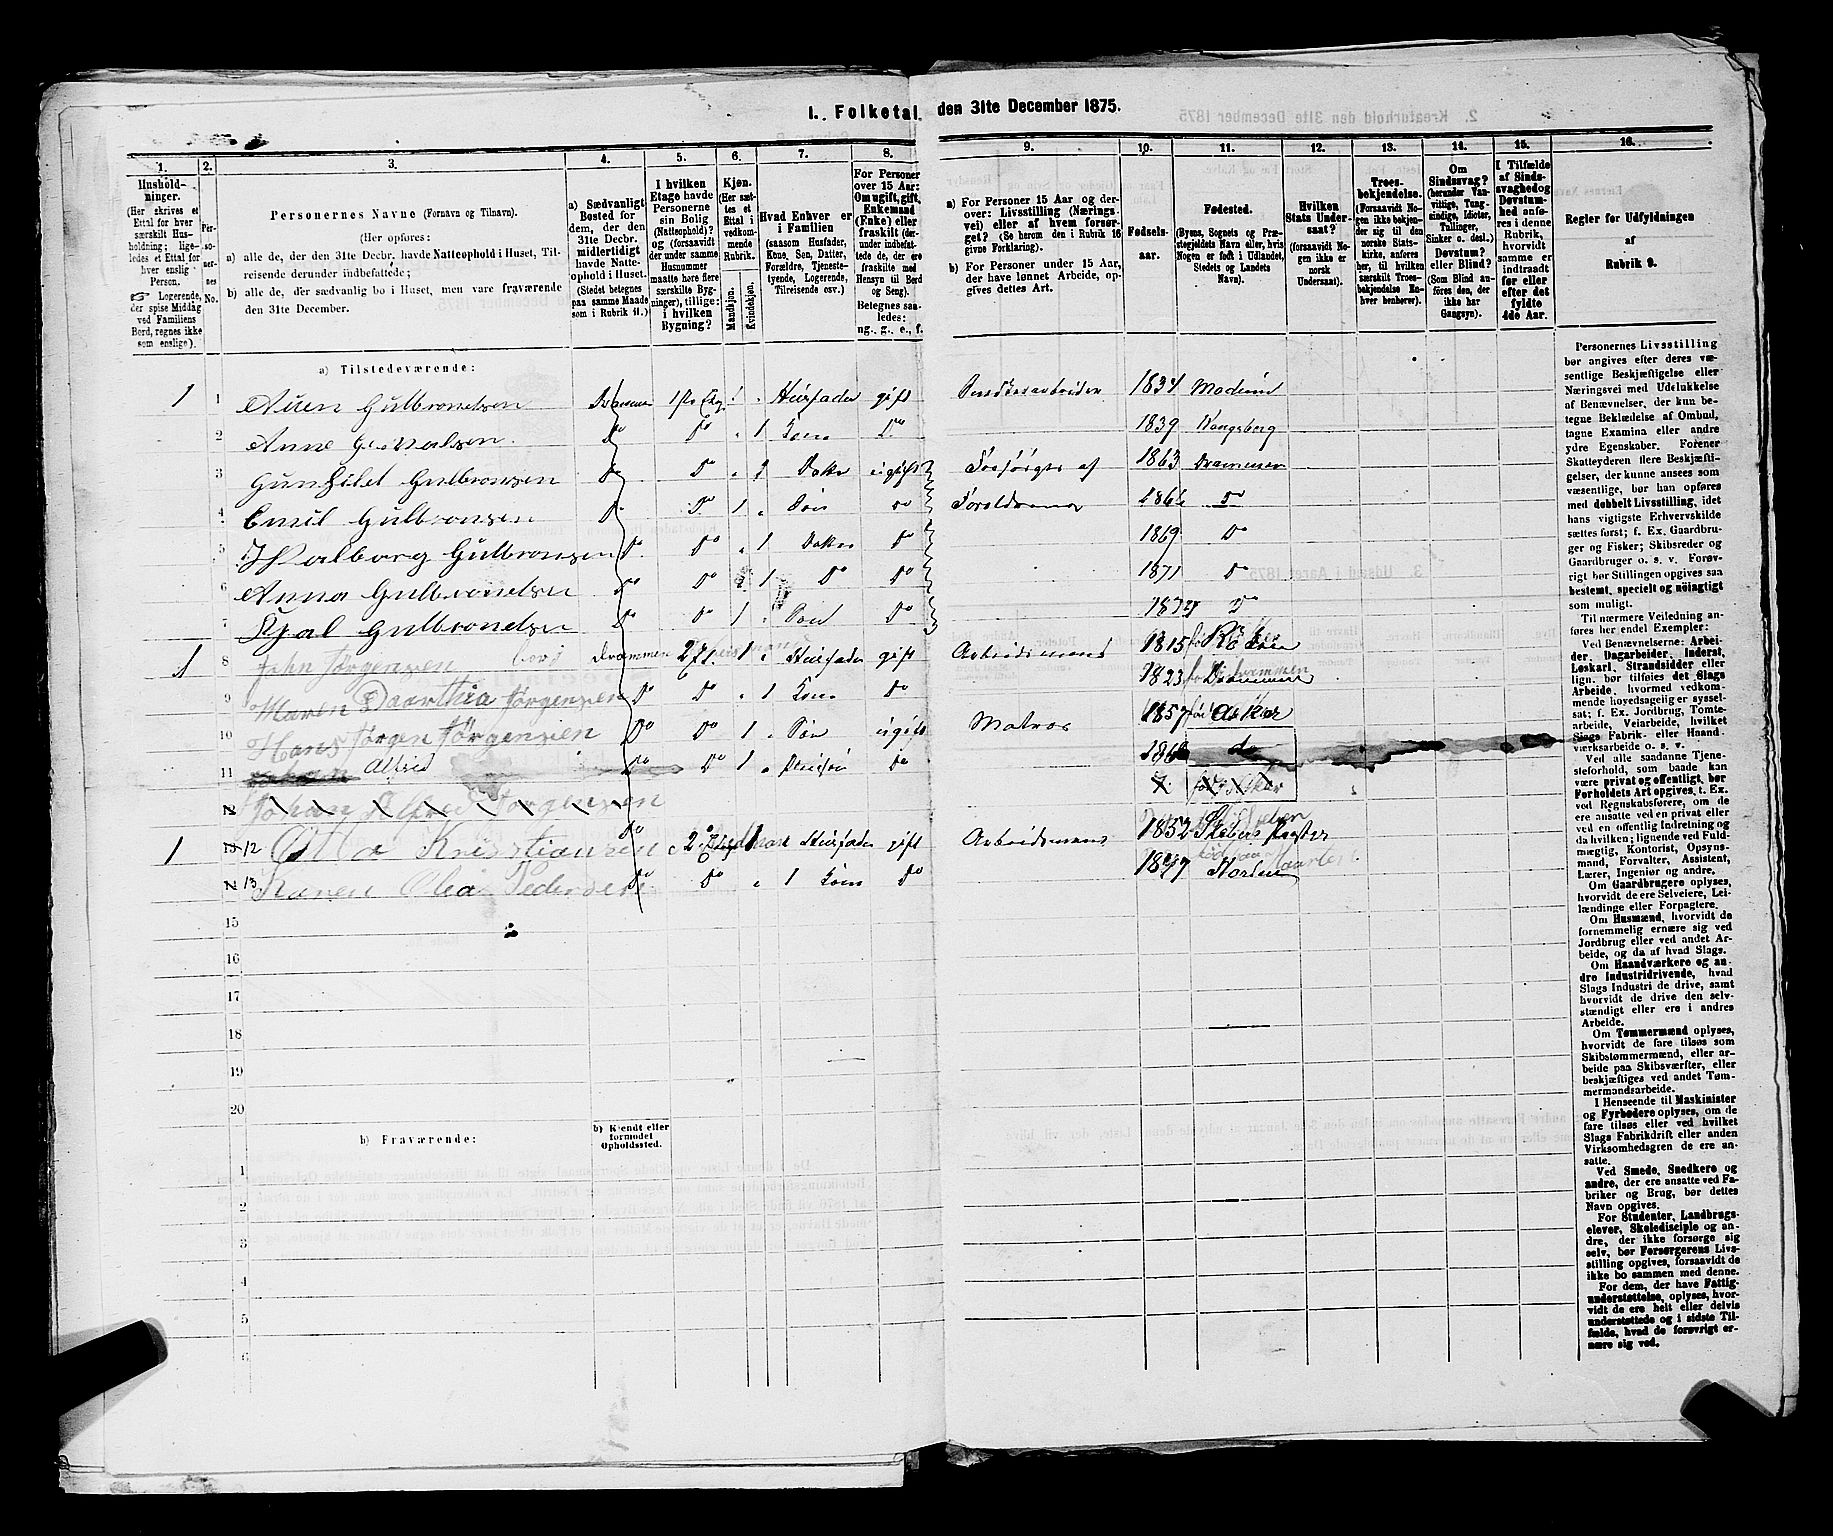 1. Folketal den 31te December 1875.
1.
Hushold-
ninger.
(Her skrives et
Ettal for hver
særskilt Hus-
holdning; lige-
ledes et Ettal for
hver enslig
Person.
Logerende,
der spise Middag
ved Familiens
Bord, regnes ikke
som enslige).
2.
Per-
so-
ner-
nes
No.
3.
Personernes Navne (Fornavn og Tilnavn).
(Her opføres:
a) alle de, der den 31te Decbr. havde Natteophold i Huset, Til-
reisende derunder indbefattede;
b) alle de, der sædvanlig bo i Huset, men vare fraværende
den 31te December.
4.
a) Sædvanligt
Bosted for
dem, der den
31te Decbr.
midlertidigt
havde Natte-
ophold i Huset.
(Stedet betegnes
paa samme Maade
som i Rubrik 11.)
5.
I hvilken
Etage havde
Personerne
sin Bolig
(Natteophold)?
og (forsaavidt
der under samme
Husnummer
maatte høre flere
særskilte Byg-
ninger), tillige:
i hvilken
Bygning?
6.
Kjøn.
(Her sæt-
tes et
Ettal i
vedkom-
mende
Rubrik.
Mandkjøn.
Kvindekjøn.
7.
Hvad Enhver er
i Familien
(saasom Husfader,
Kone, Søn, Datter,
Forældre, Tjeneste-
tyende, Logerende,
Tilreisende osv.)
8.
For Personer
over 15 Aar:
Om ugift, gift,
Enkemand
(Enke) eller
fraskilt (der-
under indbefat-
tede de, der
ere fraskilte med
Hensyn til Bord
og Seng).
Betegnes saa-
ledes:
ng., g., e., f.
9.
a) For Personer 15 Aar og der-
over: Livsstilling (Nærings-
vei) eller af hvem forsør-
get? (Se herom den i Rubrik 16
givne Forklaring).
b) For Personer under 15 Aar,
der have lønnet Arbeide, op-
gives dettes Art.
10.
Fødsels-
aar.
11.
Fødested.
(Byens, Sognets og Præ-
stegjeldets Navn eller, hvis
Nogen er født i Udlandet,
Stedets og Landets
Navn).
12.
Hvilken
Stats Under-
saat?
(forsaavidt No-
gen ikke er
norsk
Undersaat).
13.
Troes-
bekjendelse.
(Forsaavidt No-
gen ikke bekjen-
der sig til den
norske Stats-
kirke, anføres
her, til hvilken
særskilt Troes-
bekjendelse En-
hver henhører).
14.
Om
Sindssvag?
(herunder Van-
vittige, Tung-
sindige, Idioter,
Tullinger,
Sinker o. desl.)
Døvstum?
eller Blind?
(Som Blind an-
føres den, der
ikke har
Gangsyn).
15.
I Tilfælde
af Sinds-
svaghed og
Døvstum-
hed anfø-
res i denne
Rubrik,
hvorvidt
samme er
indtraadt
før eller
efter det
fyldte
4de Aar.
16.
Regler for Udfyldningen
af
Rubrik 9.
a) Tilstedeværende:
1 1 Gulbrandsen Drammen 1ste Etg. 1 Husfader gift 1834 Modum
2 Anne Do Do 1 Kone Do 1839 Kongsberg
3 Gunhild Gulbransen Do Do 1 ugift Forsørges af 1863 Drammen
4 Emil Gulbransen Do Do 1 Søn Do Forældrene Do
5 Walborg Gulbronsen Do Do 1 Do 1869 Do
6 Anna Gulbrandsen Do Do 1 Do Do 1871 Do
7 Gulbrandsen Do Do 1 Søn Do Do
1 8 John Jørgensen Drammen 1 Husfader gift Arbeidsmand 1815
9 Maren Daarthia Jørgensen Do Do 1 Kone Do 1823 Drammen
10 Hans Jørgen Jørgensen Do Do 1 Søn ugift Matros 1857 Asker
11 Alfred Do Do 1 Do do
12 Johan Alfred Jørgensen Asker
1 13 12 Kristiansen Do 1 Husfader gift Arbeidsmand 1852
13 Karen Olia Pedersen Do Do 1 Kone Do 1847
15
16
17
18
19
20
b) Fraværende:
b) Kjendt eller
formodet
Opholdssted.
1
2
3
4
5
6
Personernes Livsstilling
bør angives efter deres væ-
sentlige Beskjæftigelse eller
Næringsvei med Udelukkelse
af Benævnelser, der kun be-
tegne Beklædelse af Ombud,
tagne Examina eller andre
ydre Egenskaber. Forener
Skatteyderen flere Beskjæfti-
gelser, der kunne ansees som
væsentlige, bør han opføres
med dobbelt Livsstilling, idet
hans vigtigste Erhvervskilde
sættes først; f. Ex. Gaardbru-
ger og Fisker; Skibsreder og
Gaardbruger o. s. v. Forøv-
rigt bør Stillingen opgives saa
bestemt, specielt og nøiagtigt
som muligt.
Til nærmere Veiledning an-
føres her endel Exempler:
Ved Benævnelserne: Arbei-
der, Dagarbeider, Inderst,
Løskarl, Strandsidder eller
lign. bør tilføies det Slags
Arbeide, hvormed vedkom-
mende hovedsagelig er syssel-
sat; f. Ex. Jordbrug, Tomte-
arbeide, Veiarbeide, hvilket
Slags Fabrik- eller Haand-
værksarbeide o. s. v.
Ved alle saadanne Tjene-
steforhold, som baade kan
være privat og offentligt, bør
Forholdets Art opgives, t. Ex.
ved Regnskabsførere, om de
ere ansatte ved en privat eller
ved en offentlig Indretning og
da hvilken; lignende ved Fuld-
mægtig, Kontorist, Opsyns-
mand, Forvalter, Assistent,
Lærer, Ingeniør og andre.
Om Gaardbrugere oplyses,
hvorvidt de ere Selveiere, Lei-
lændinge eller Forpagtere.
Om Husmænd, hvorvidt de
fornemmelig ernære sig ved
Jordbrug eller ved andet Ar-
beide, og da af hvad Slags.
Om Haandværkere og an-
dre Industridrivende, hvad
Slags Industri de drive, samt
hvorvidt de drive den selv-
stændigt eller ere i andres
Arbeide.
Om Tømmermænd oplyses,
hvorvidt de fare tilsøs som
Skibstømmermænd, eller ar-
beide paa Skibsværfter, eller
beskjæftiges ved andet Tøm-
mermandsarbeide.
I Henseende til Maskinister
og Fyrbødere oplyses, om de
fare tilsøs eller ved hvilket
Slags Fabrikdrift eller anden
Virksomhedsgren de ere an-
satte.
Ved Smede, Snedkere og
andre, der ere ansatte ved Fa-
briker og Brug, bør dettes
Navn opgives.
For Studenter, Landbrugs-
elever, Skoledisciple og an-
dre, der ikke forsørge sig
selv, bør Forsørgerens Livs-
stilling opgives, forsaavidt de
ikke bo sammen med denne.
For dem, der have Fattig-
understøttelse, oplyses, hvor-
vidt de ere helt eller delvis
understøttede og i sidste Til-
fælde, hvad de forøvrigt er-
nære sig ved.